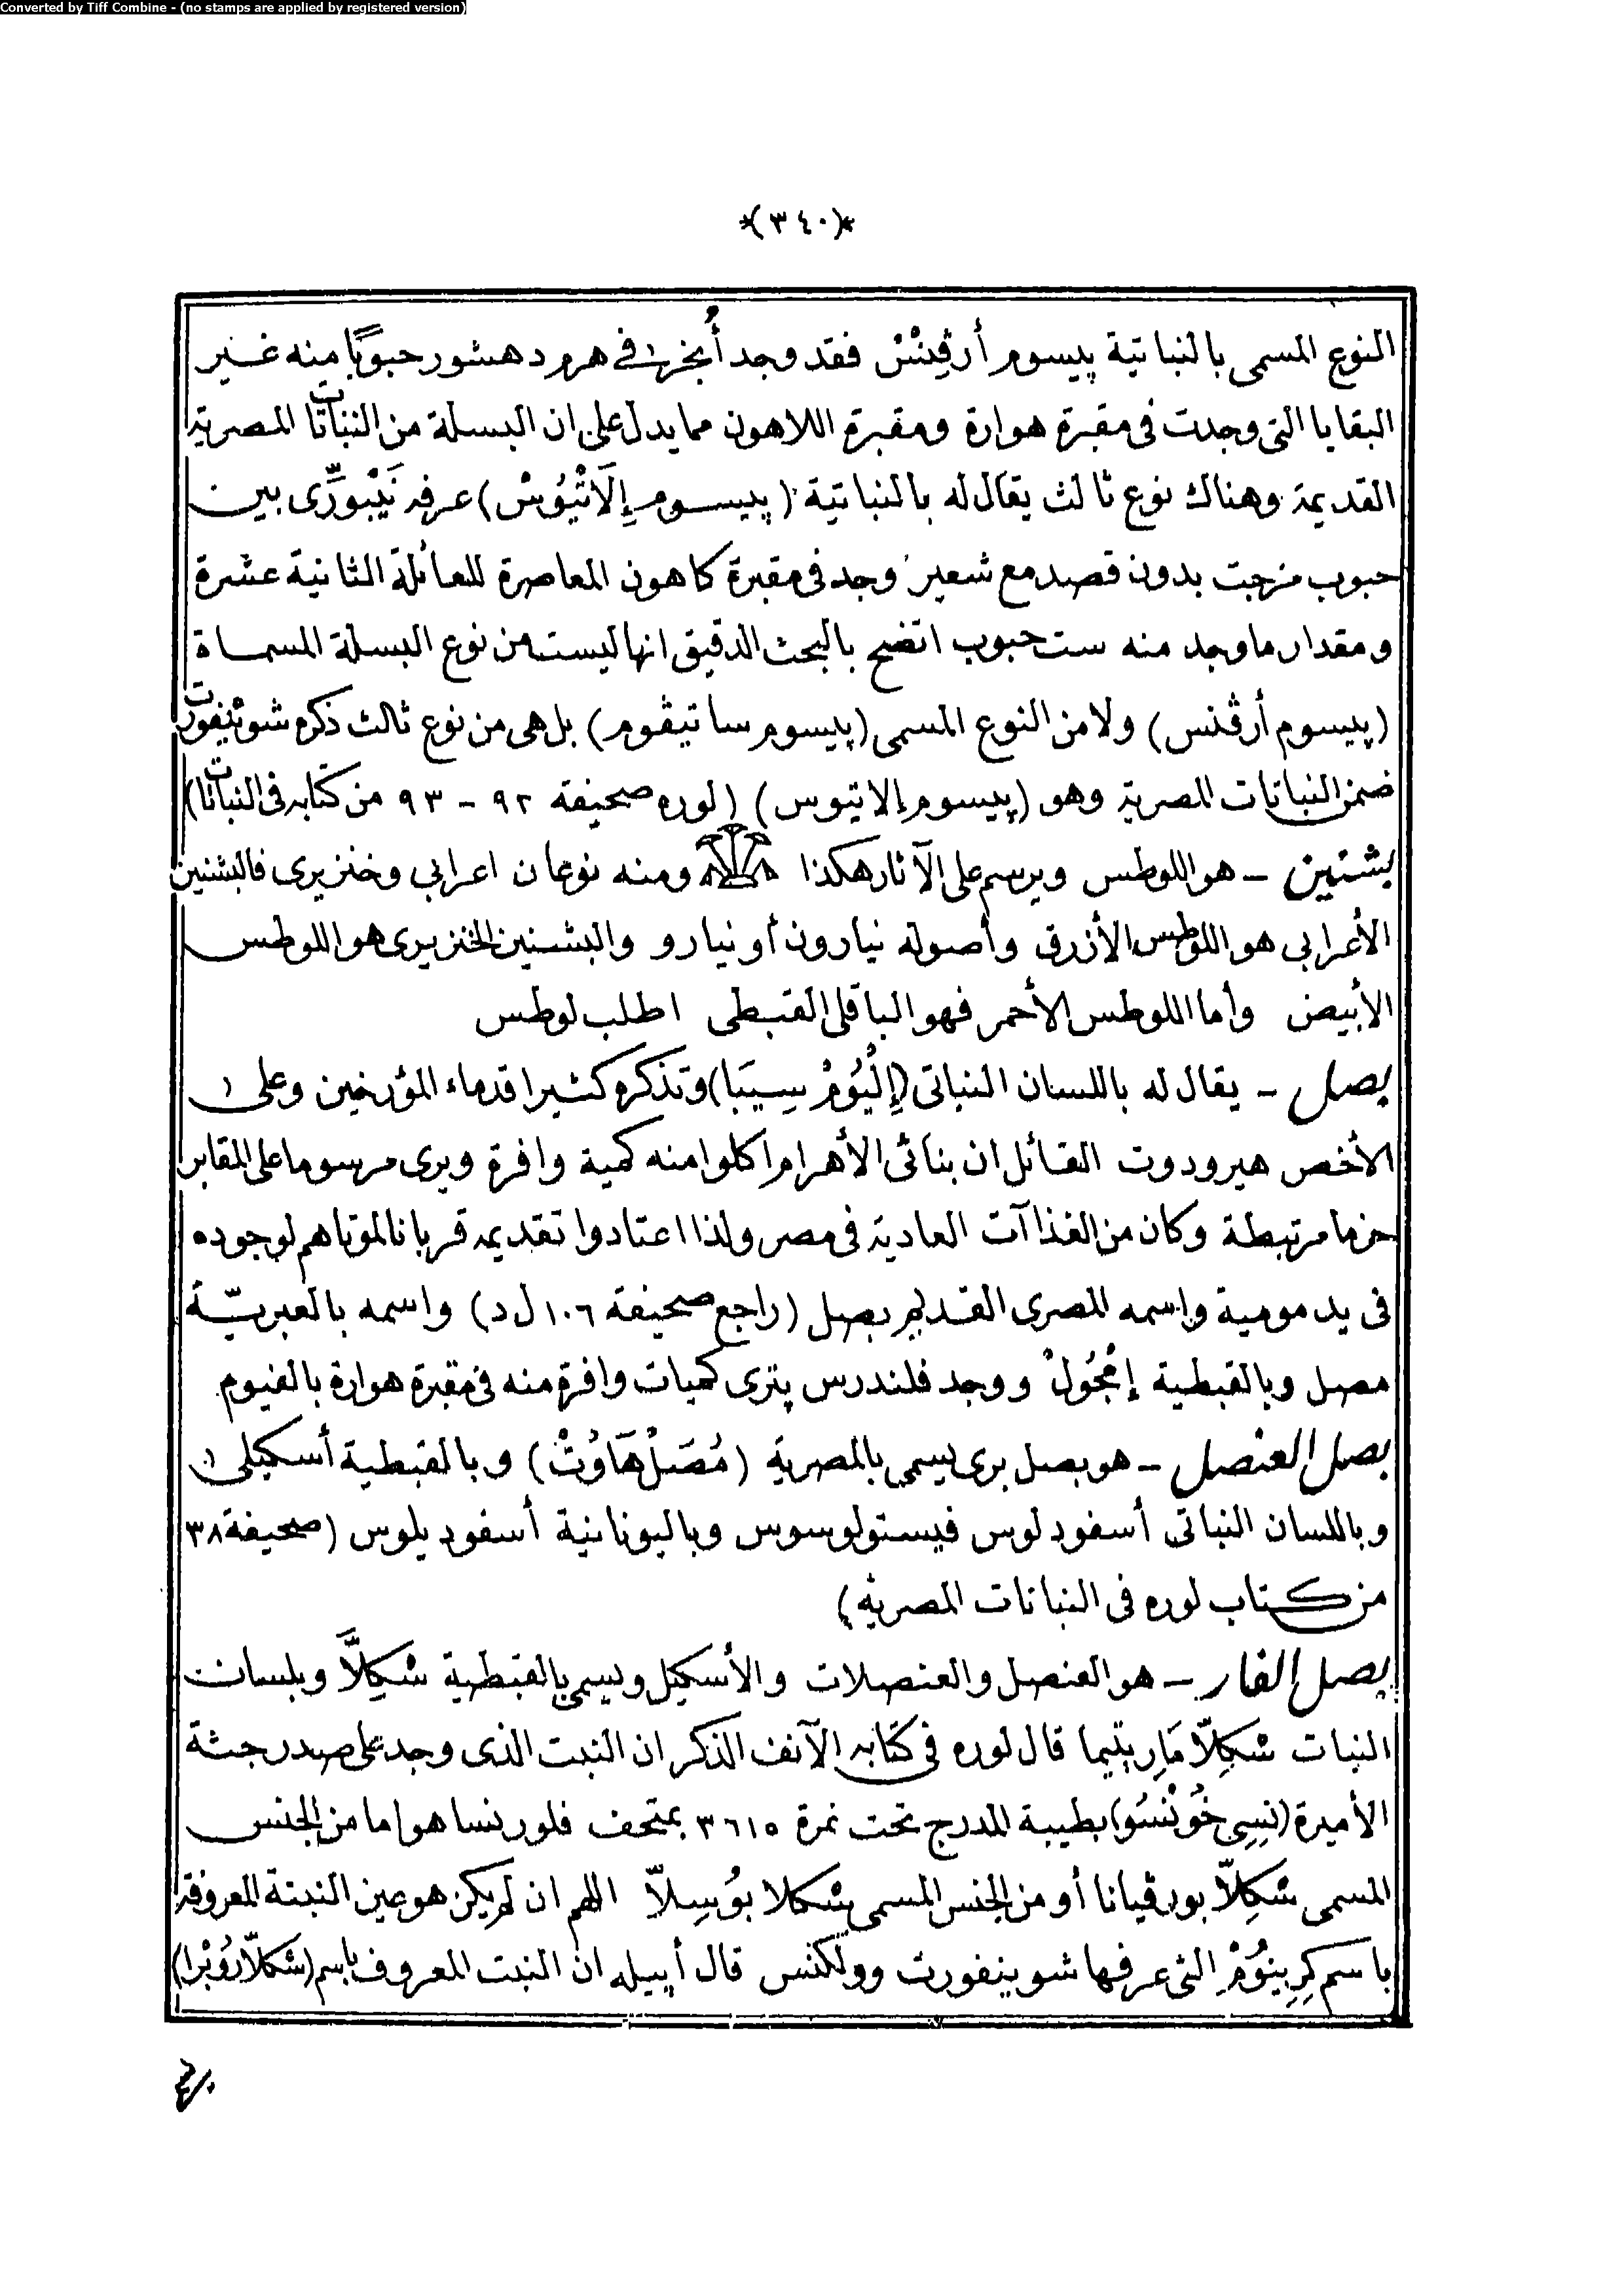 Converted by Tiff Combine - (no stamps are applied by registered version)
*(٣٤٠)*
النوع المسمى بالنباتية پيسوم أرڤينْسْ فقد وجد أُنجر فى هرم دهشور حبوبًا منه غير
البقايا التى وجدت فى مقبرة هوارة ومقبرة اللاهون مما يدل على ان البسلة من النباتات المصرية
القديمة وهناك نوع ثالث يقال له بالنباتية (پيسوم إِلَاتْيُوسْ) عرفه نَيْبورِّى بين
حبوب مزجت بدون قصد مع شعير وجد فى مقبرة كاهون المعاصرة للعائلة الثانية عشرة
ومقدار ما وجد منه ست حبوب اتضح بالبحث الدقيق انها ليست من نوع البسلة المسماة
(پيسوم أرڤنس) ولا من النوع المسمى (پيسوم ساتيڤوم) بل هى من نوع ثالث ذكره شوينفورت
ضمن النباتات المصرية وهو (پيسوم إلاتيوس) (لوره صحيفة ٩٢ - ٩٣ من كتابه فى النباتات)
بشنين - هو اللوطس ويرسم على الآثار هكذا ومنه نوعان اعرابي وخنزيرى فالبشنين
الأعرابي هو اللوطس الأزرق وأصوله نيارون أو نيارو والبشنين الخنزيرى هو اللوطس
الأبيض وأما اللوطس الأحمر فهو الباقلى القبطى اطلب لوطس
بصل - يقال له باللسان النباتى (إِلْيُومْ سِيبَا) وتذكره كثيرا قدماء المؤرخين وعلى
الأخص هيرودوت القائل ان بنائى الأهرام اكلوا منه كمية وافرة ويرى مرسوما على المقابر
حزما مرتبطة وكان من الغذاآت العادية فى مصر ولذا اعتادوا تقديمه قربانا لموتاهم لوجوده
فى يد مومية واسمه المصرى القديم بصل (راجع صحيفة ١٠٦ ل د) واسمه بالعبريّة
مصل وبالقبطية إمْجُولْ ووجد فلندرس پترى كميات وافرة منه فى مقبرة هوارة بالفيوم
بصل العنصل - هو بصل برى يسمى بالمصرية (مُصَلْ هَاوُتْ) وبالقبطية أسكيلى
وباللسان النباتى أسفودلوس فيستولوسوس وباليونانية أسفوديلوس (صحيفة ٣٨
من كتاب لوره فى النباتات المصرية)
بصل الفار - هو العنصل والعنصلات والأسكيل ويسمى بالقبطية شكِلاَّ وبلسان
النبات شكِلاّ مَارِيتيما قال لوره فى كتابه الآنف الذكر ان النبت الذى وجد على صدر جثة
الأميرة (نِسِى خُونْسُو) بطيبة المدرج تحت نمرة ٣٦١٥ بمتحف فلورنسا هو اما من الجنس
المسمى شكِلاّ بورڤيانا أو من الجنس المسمى شكلا بوُسِلاّ اللهم ان لم يكن هو عين النبتة المعروفة
باسم كرِينُومْ التى عرفها شوينفورت وولكنس قال أپيله ان النبت المعروف باسم (شكلاّ رُوبْرا)